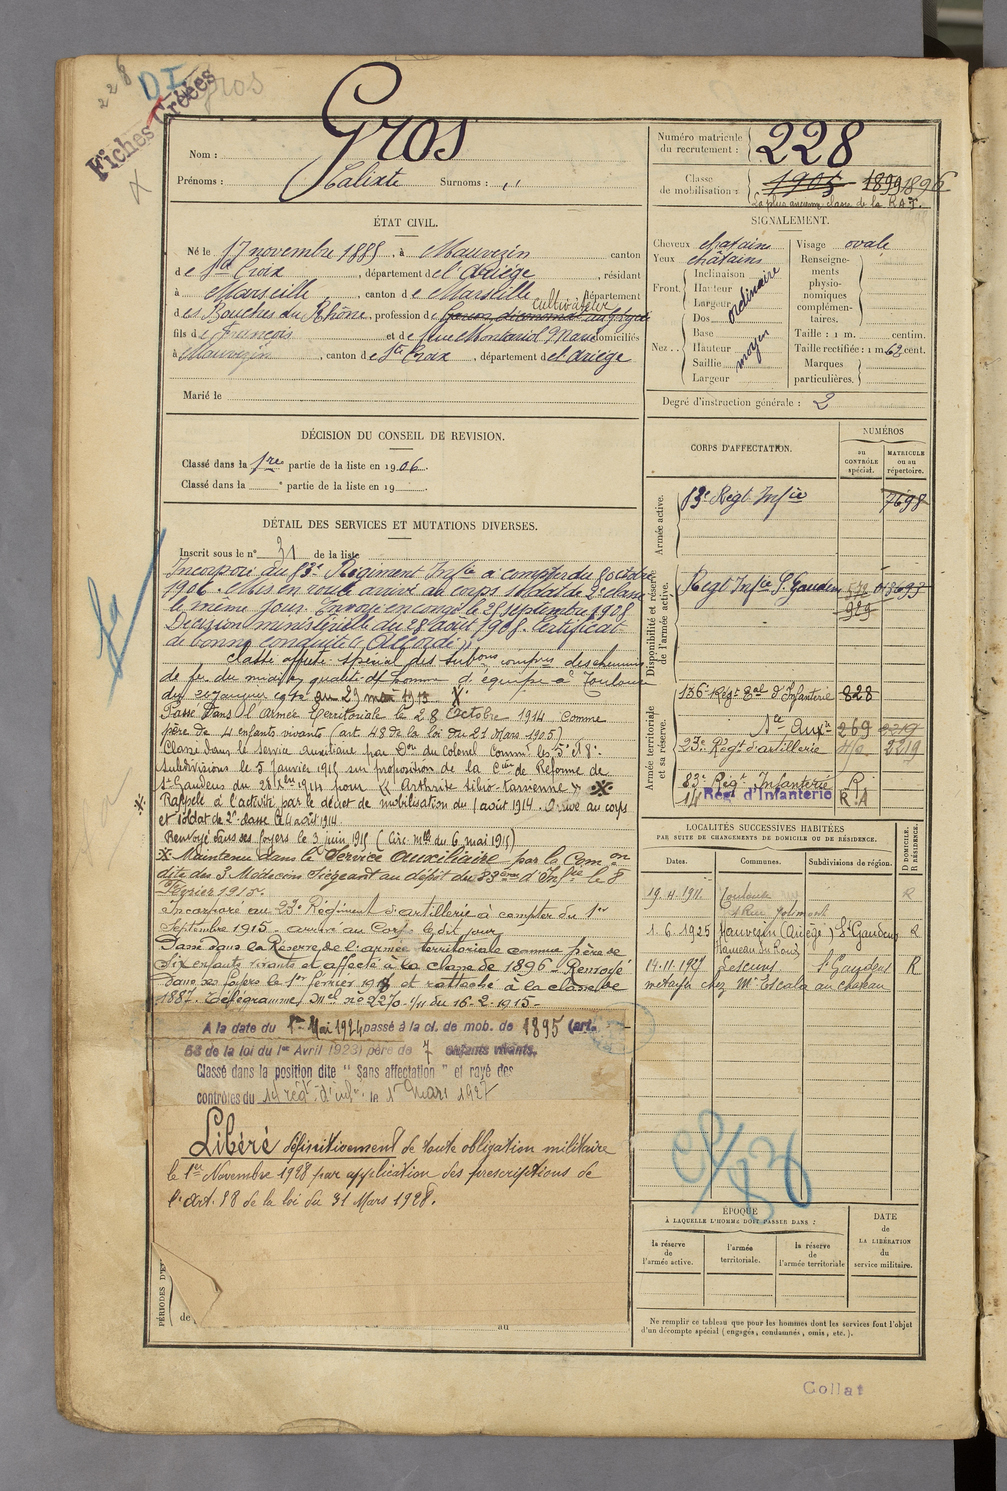 228
D I
Gros
Fiches Créées
Nom : Gros
Prénoms : Calixte Surnoms : ,,
Numéro matricule du recrutement : 228
Classe de mobilisation : 1905 1899 1896
La plus ancienne classe de la R.A.T.
ÉTAT CIVIL.
Né le 17 novembre 1885, à Mauvezin canton
de Ste Croix, département de l'Ariège, résidant
à Marseille, canton de Marseille, département
cultivateur
des Bouches du Rhône, profession de
fils de François et de feue Montariol Marie domiciliés
à Mauvezin, canton de Ste Croix, département de l'Ariège
Marié le
SIGNALEMENT.
Cheveux châtains
Yeux châtains
Front. Inclinaison Hauteur Largeur ordinaire
Nez.. Dos Base Hauteur Saillie Largeur moyen
Visage ovale
Renseignements physionomiques complémentaires.
Taille : 1 m. centim.
Taille rectifiée : 1 m. 62 cent.
Marques particulières.
Degré d'instruction générale : 2
DÉCISION DU CONSEIL DE REVISION.
Classé dans la 1re partie de la liste en 1906.
Classé dans la e partie de la liste en 19
DÉTAIL DES SERVICES ET MUTATIONS DIVERSES.
Inscrit sous le n° 31 de la liste
Incorporé au 83e Régiment Infie à compter du 8 octobre
1906. Mis en route arrivé au corps soldat de 2e classe
le même jour. Envoyé en congé le 28 septembre 1908
Décision ministérielle du 28 août 1908. Certificat
de bonne conduite "Accordé"
Classé affecté spécial des subons compies des chemins
de fer du midi en qualité d' homme d'équipe à Toulouse
du au 29 mai 1913 X.
Passé dans l'Armée Territoriale le 28 Octobre 1914 comme
père de 4 enfants vivants (art 48 de la loi du 21 Mars 1905)
Classé dans le service auxiliaire par Don du Colonel Commt les 5e et 8e
Subdivisions le 5 Janvier 1915 sur proposition de la Cion de Réforme de
St Gaudens du 28 1914 pour "Arthrite tibio-tarsienne"
Rappelé à l'activité par le décret de mobilisation du 1 août 1914. Arrivé au corps
et soldat de 2e classe le 4 août 1914.
Renvoyé dans ses foyers le 3 juin 1915 (Circ. mlle du 6 mai 1915)
Maintenu dans le Service auxiliaire par la Comon
dite des 3 Médecins siégeant au dépôt du 83ème d'Infie le 8
Février 1915.
Incorporé au 23e Régiment d'artillerie à compter du 1er
Septembre 1915 - arrivé au Corps le dit jour
Passé dans la Réserve de l'armée territoriale comme père de
six enfants vivants et affecté à la classe de 1896. Renvoyé
dans ses foyers le 1er février 1918 et rattaché à la classe de
1887. Télégramme Mel no 2270-1/11 du 16-2-1915-
A la date du 1er Mai 1924 passé à la cl. de mob. de 1895 (art.
58 de la loi du 1er Avril 1923) père de 7 enfants vivants.
Classé dans la position dite "Sans affectation" et rayé des
contrôles du 14 rég. d'inf. le 1er Mars 1927
Libéré définitivement de toute obligation militaire
le 1er Novembre 1928 par application des prescriptions de
l'art. 98 de la loi du 31 Mars 1928.
PÉRIODES D'E
de
au
CORPS D'AFFECTATION.
NUMÉROS
au CONTRÔLE spécial.
MATRICULE ou au répertoire.
Armée active.
83e Régt Infie 7698
Disponibilité et réserve de l'armée active.
Régt Infie St Gaudens 572 013693
929
Armée territoriale et sa réserve.
136e Régt Eal d'Infanterie 828
Sce Auxre 269 2219
23e Régt d'artillerie 2219
83e Régt Infanterie R
14 Régt d'Infanterie R.A
LOCALITÉS SUCCESSIVES HABITÉES
PAR SUITE DE CHANGEMENTS DE DOMICILE OU DE RÉSIDENCE.
Dates. Communes. Subdivisions de région. D DOMICILE. R RÉSIDENCE.
19.4.1911. Toulouse R
Rue Jolimont
1.6.1925 Mauvezin (Ariège) St Gaudens R
14-11-1927 Lescuns St Gaudens R
métayer chez Mr Escala au chateau
ÉPOQUE
À LAQUELLE L'HOMME DOIT PASSER DANS :
la réserve de l'armée active.
l'armée territoriale.
la réserve de l'armée territoriale
DATE de LA LIBÉRATION du service militaire.
Ne remplir ce tableau que pour les hommes dont les services font l'objet
d'un décompte spécial (engagés, condamnés, omis, etc.).
Collat